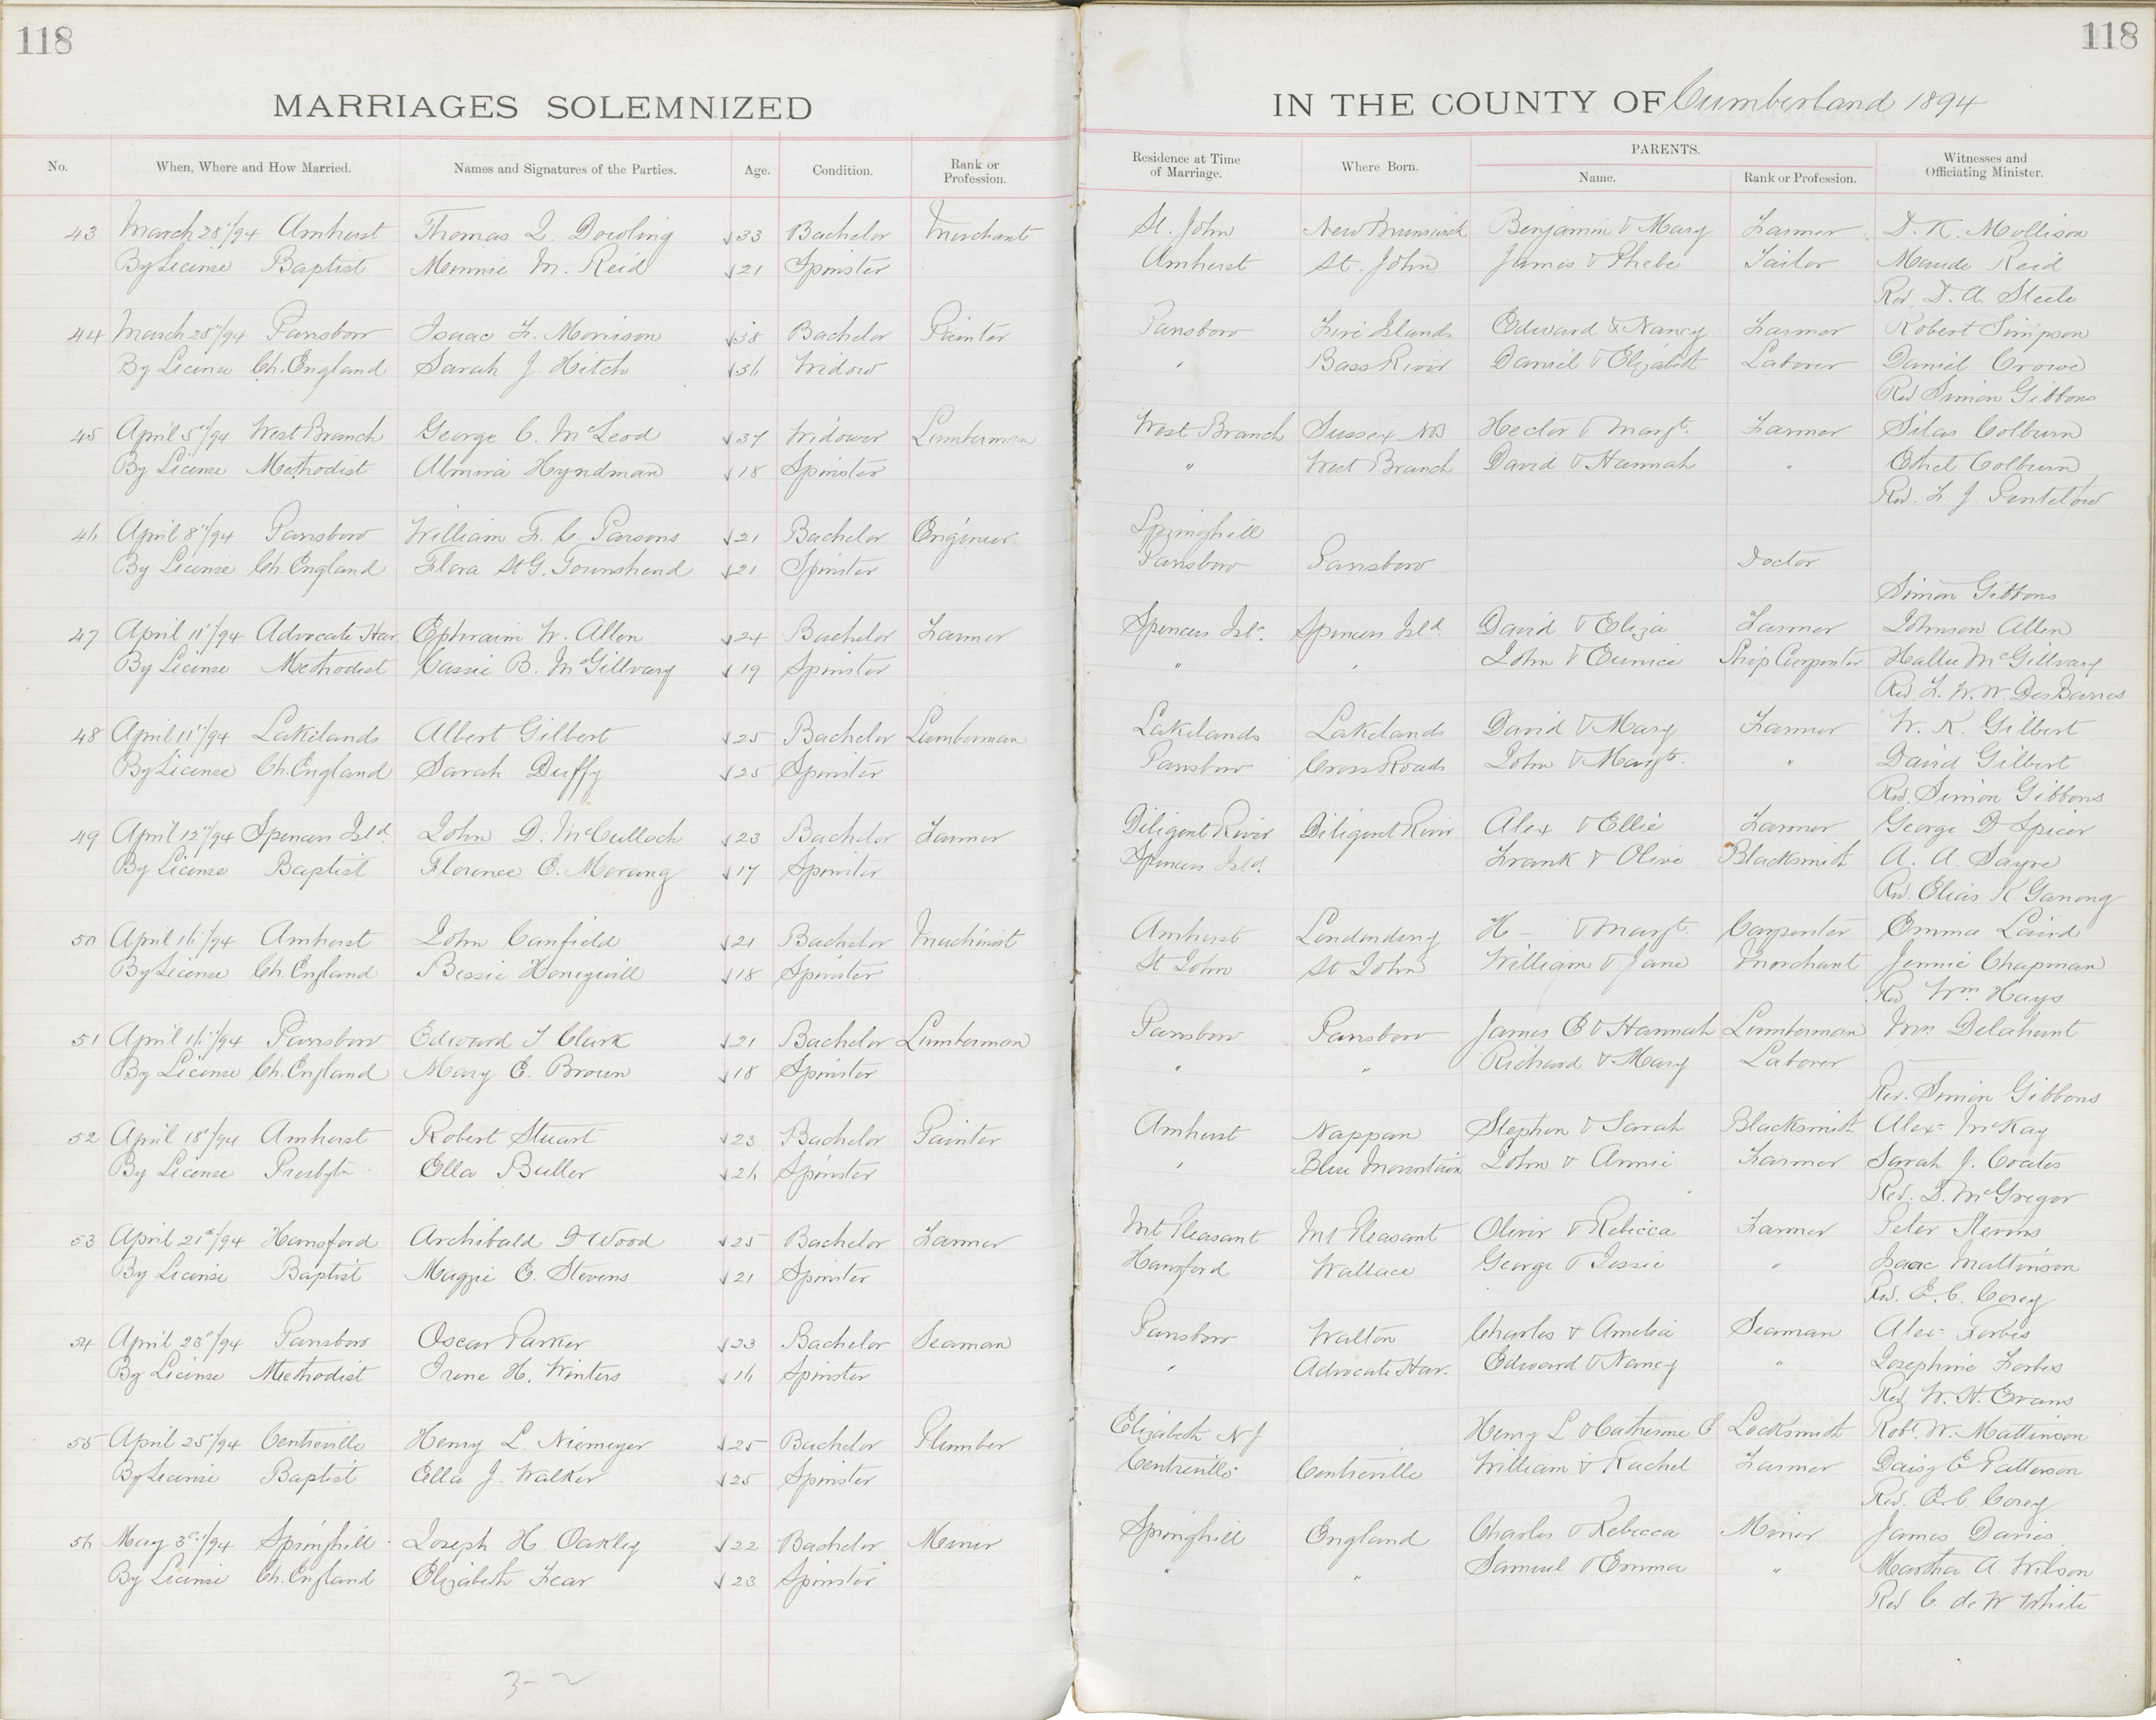 118
118
MARRIAGES SOLEMNIZED
IN THE COUNTY OF Cumberland 1894
No. When, Where and How Married. Names and Signatures of the Parties. Age. Condition. Rank or Profession. Residence at Time of Marriage. Where Born. PARENTS. Name. Rank or Profession. Witnesses and Officiating Minister.
43 March 28"/94 Amherst Thomas I. Dowling √33 Bachelor Merchant St. John New Brunswick Benjamin & Mary Farmer D. K. Mollison
By License Baptist Minnie M. Reid √21 Spinster Amherst St. John James & Phebe Tailor Maude Reid
Rev. D. A. Steele
44 March 28"/94 Parrsboro Isaac F. Morrison √38 Bachelor Painter Parrsboro Five Islands Edward & Nancy Farmer Robert Simpson
By License Ch. England Sarah J. Hitch √36 Widow " Bass River Daniel & Elizabeth Laborer Daniel Crowe
Rev Simon Gibbons
45 April 5"/94 West Branch George C. McLeod √37 Widower Lumberman West Branch Sussex NB Hector & Margt. Farmer Silas Colburn
By License Methodist Almira Hyndman √18 Spinster " West Branch David & Hannah " Ethel Colburn
Rev. F. J. Pentelow
46 April 8"/94 Parrsboro William F. C. Parsons √21 Bachelor Engineer Springhill
By License Ch. England Flora St G. Townshend √21 Spinster Parrsboro Parrsboro Doctor
Simon Gibbons
47 April 11"/94 Advocate Har. Ephraim W. Allen √24 Bachelor Farmer Spencers Isl. Spencers Isld. David & Eliza Farmer Johnson Allen
By License Methodist Cassie B. McGillvary √19 Spinster " " John & Eunice Ship Carpenter Hallie McGillvary
Rev F. W. W. DesBarres
48 April 11"/94 Lakelands Albert Gilbert √25 Bachelor Lumberman Lakelands Lakelands David & Mary Farmer W. K. Gilbert
By License Ch. England Sarah Duffy √25 Spinster Parrsboro Cross Roads John & Margt. " David Gilbert
Rev. Simon Gibbons
49 April 12"/94 Spencers Isld. John D. McCulloch √23 Bachelor Farmer Diligent River Diligent River Alex & Ellie Farmer George D Spicer
By License Baptist Florence E. Morang √17 Spinster Spencers Isld. Frank & Olive Blacksmith A. A. Sayre
Rev. Elias K Ganong
50 April 16"/94 Amherst John Canfield √21 Bachelor Machinist Amherst Londonderry H - & Margt. Carpenter Emma Laird
By License Ch. England Bessie Honeywill √18 Spinster St John St John William & Jane Merchant Jennie Chapman
Rev Wm. Hays
51 April 16"/94 Parrsboro Edward T Clark √21 Bachelor Lumberman Parrsboro Parrsboro James E & Hannah Lumberman Mrs Delahunt
By License Ch. England Mary E. Brown √18 Spinster " " Richard & Mary Laborer
Rev. Simon Gibbons
52 April 18"/94 Amherst Robert Stuart √23 Bachelor Painter Amherst Nappan Stephen & Sarah Blacksmith Alex McKay
By License Presbytn Ella Buller √26 Spinster " Blue Mountain John & Annie Farmer Sarah J. Coates
Rev. D. McGregor
53 April 21st/94 Hansford Archibald D Wood √25 Bachelor Farmer Mt Pleasant Mt Pleasant Oliver & Rebecca Farmer Peter Stevens
By License Baptist Maggie E. Stevens √21 Spinster Hansford Wallace George & Jessie " Isaac Mattinson
Rev. E. C. Corey
54 April 23"/94 Parrsboro Oscar Parker √23 Bachelor Seaman Parrsboro Walton Charles & Amelia Seaman Alex Forbes
By License Methodist Irene H. Winters √16 Spinster " Advocate Har. Edward & Nancy " Josephine Forbes
Rev. W. H. Evans
55 April 25"/94 Centreville Henry L. Niemeyer √25 Bachelor Plumber Elizabeth N J Henry L & Catherine C Locksmith Robt. W. Mattinson
By License Baptist Ella J. Walker √25 Spinster Centreville Centreville William & Rachel Farmer Daisy E Patterson
Rev. E. C. Corey
56 May 3rd/94 Springhill Joseph H. Oakley √22 Bachelor Miner Springhill England Charles & Rebecca Miner James Davies
By License Ch. England Elizabeth Fear √23 Spinster " " Samuel & Emma " Martha A. Wilson
Rev C. de W White
3-2